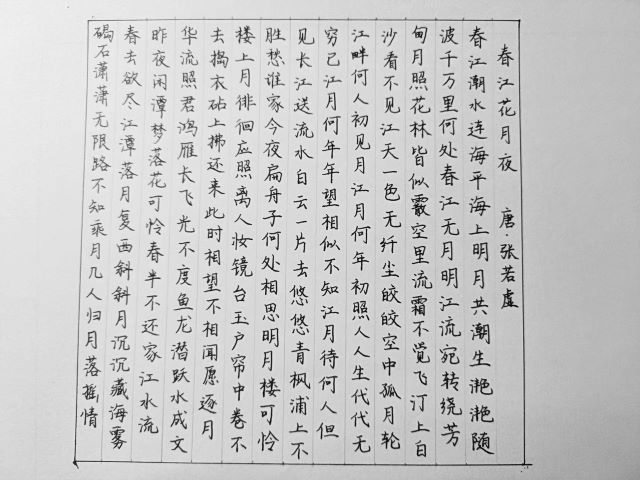 春江花月夜 唐·张若虚
春江潮水连海平海上明月共潮生滟滟随
波千万里何处春江无月明江流宛转绕芳
甸月照花林皆似霰空里流霜不觉飞汀上白
沙看不见江天一色无纤尘皎皎空中孤月轮
江畔何人初见月江月何年初照人人生代代无
穷已江月何年年望相似不知江月待何人但
见长江送流水白云一片去悠悠青枫浦上不
胜愁谁家今夜扁舟子何处相思明月楼可怜
楼上月徘徊应照离人妆镜台玉户帘中卷不
去捣衣砧上拂还来此时相望不相闻愿逐月
华流照君鸿雁长飞光不度鱼龙潜跃水成文
昨夜闲潭梦落花可怜春半不还家江水流
春去欲尽江潭落月复西斜斜月沉沉藏海雾
碣石潇潇无限路不知乘月几人归月落摇情